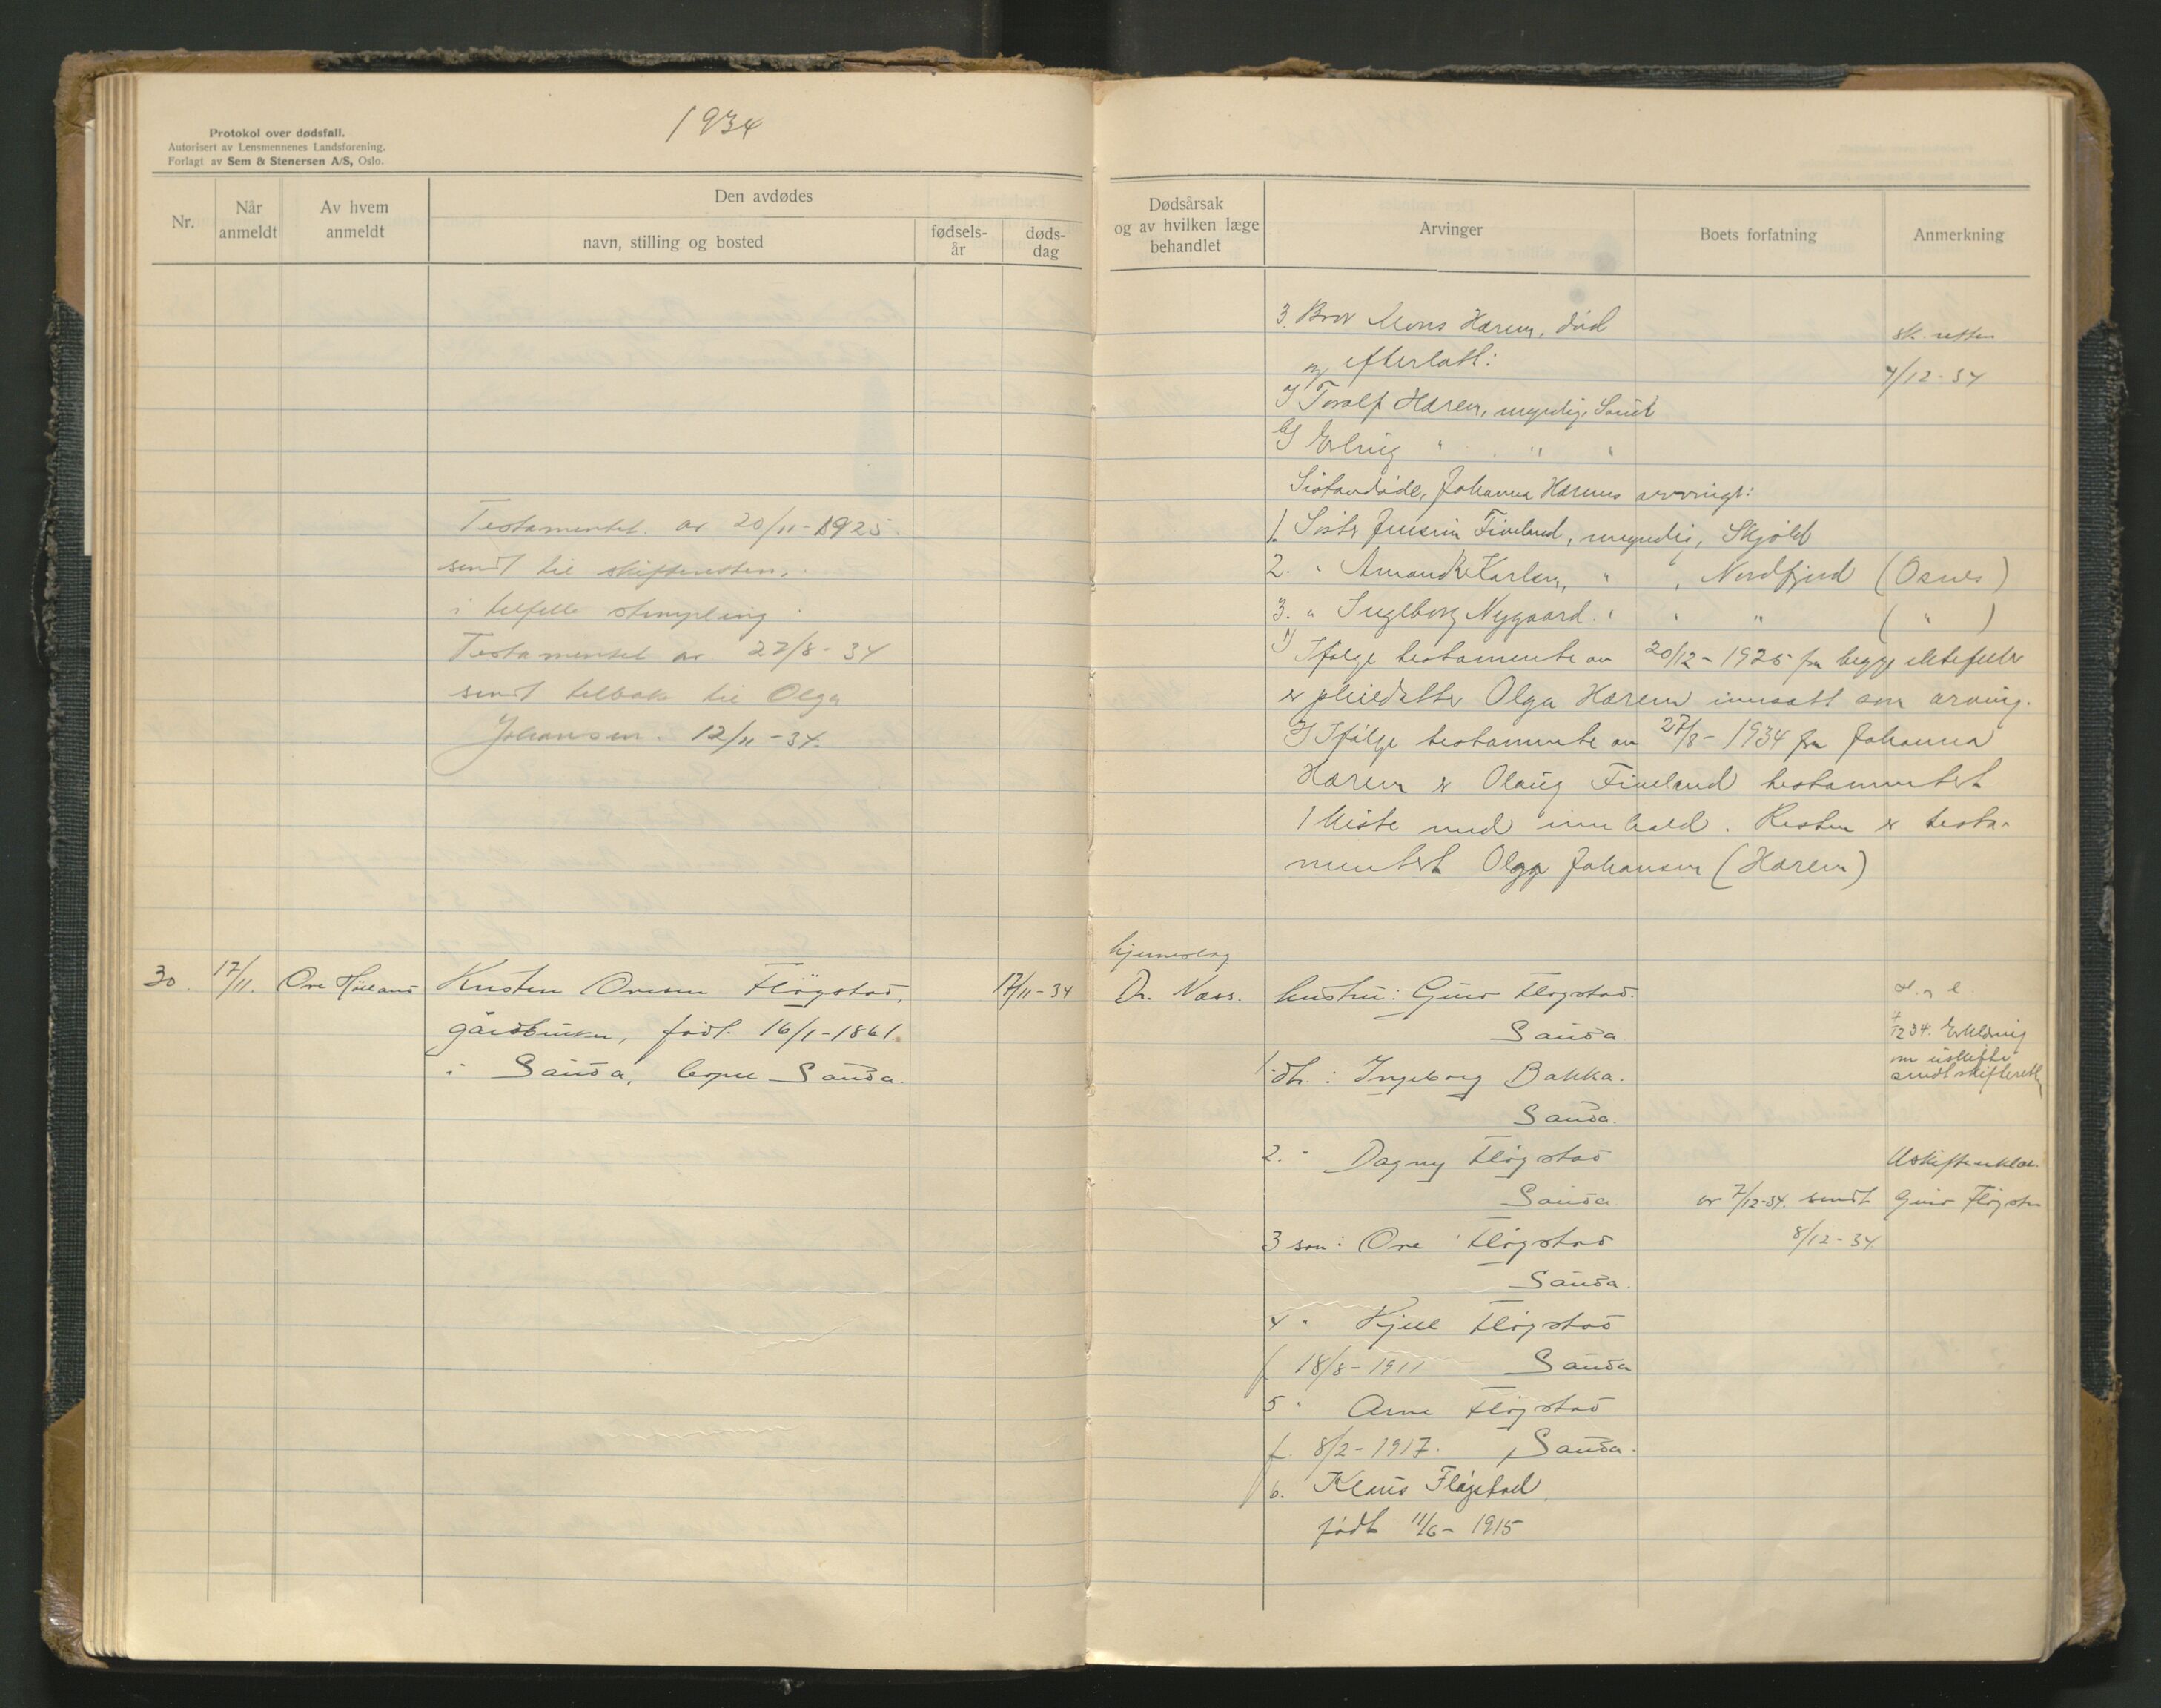 1934
Protokol over dødsfall.
Autorisert av Lensmennenes Landsforening.
Forlagt av Sem & Stenersen A/S, Oslo.
Nr.
Når anmeldt
Av hvem anmeldt
Den avdødes
navn, stilling og bosted
fødsels-år
døds-dag
Testamentet av 20/11-1925.
sendt til skifteretten,
i tilfelle stempling
Testamentet av 27/8-34
sendt tilbake til Olga
Johansen. 12/11-34.
30. 17/11. Ove Hölland Knsten Ovesen Flögstad, 17/11-34
gårdbruker, födt. 16/1-1861.
i Sauda, Sauda.
Dødsårsak
og av hvilken læge
behandlet
Arvinger
Boets forfatning
Anmerkning
3. Bror Mons Hærem, död
og efterlatt:
a) Toralf Hærem, myndig, Sauda
b) Erling " " "
Sistavdöde, Johanna Hærems arvinger:
1. Söster Jensine Fineland, myndig, Skjold
2. " Amanda Karlsen, " , Nordfjord (Osnes)
3. " Ingeborg Nygaard. " " " ( " )
1) Ifölge testamente av 20/12-1925 fra begge ektefeller
er pleiedatter Olga Hærem innsatt som arving.
2) Ifölge testamente av 27/8-1934 fra Johanna
Hærem er Olaug Fineland testamentert
1 kiste med innhold. Resten er testa-
mentert Olga Johansen (Hærem)
sk. retten
4/12-34
hjerneslag
Dr. Næss.
hustru: Guro Flögstad.
Sauda
1. dtr.: Ingeborg Bakka.
Sauda.
2. " Dagny Flögstad
Sauda
3 sön: Ove Flögstad
Sauda.
4 " Kjell Flögstad
f 18/8-1911 Sauda
5 " Arne Flögstad
f. 8/2-1917. , Sauda.
6. Klaus Flögstad
födt 11/6-1915
12 34. Erklæring
om uskifte
sendt skifteretten
Uskifteerklær.
av 7/12-34. sendt Guro Flögstad
8/12-34.